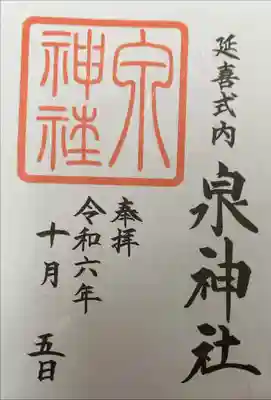 延喜式内
泉神社
奉拝
令和六年
十月 五日
泉
神社